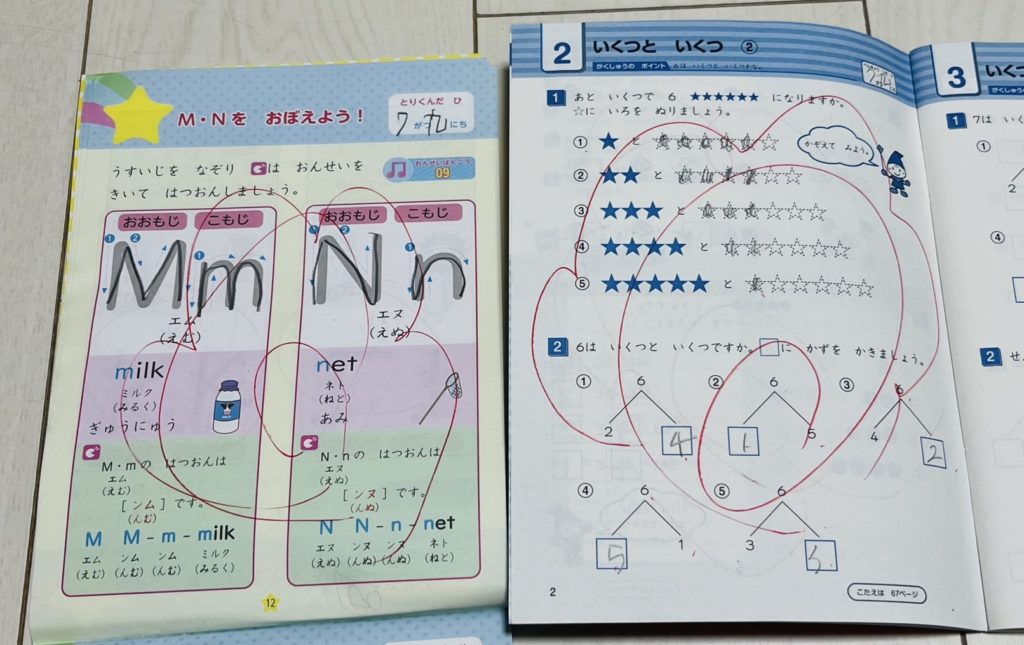 M・Nを おぼえよう!
とりくんだ ひ
7 が 九 にち
うすいじを なぞり は おんせいを
きいて はつおんしましょう。
おんせいばんごう
09
おおもじ こもじ
M m
エム
(えむ)
milk
ミルク
(みるく)
ぎゅうにゅう
M・mの はつおんは
エム
(えむ)
[ンム]です。
(んむ)
M M-m-milk
エム ンム ンム ミルク
(えむ) (んむ) (んむ) (みるく)
おおもじ こもじ
N n
エヌ
(えぬ)
net
ネト
(ねと)
あみ
N・nの はつおんは
エヌ
(えぬ)
[ンヌ]です。
(んぬ)
N N-n-net
エヌ ンヌ ンヌ ネト
(えぬ) (んぬ) (んぬ) (ねと)
12
2 いくつと いくつ ②
がくしゅうの ポイント 6は いくつと いくつかな。
1 あと いくつで 6 ★★★★★★ になりますか。
☆に いろを ぬりましょう。
かぞえて みよう。
① ★ と ☆☆☆☆☆☆
② ★★ と ☆☆☆☆☆☆
③ ★★★ と ☆☆☆☆☆☆
④ ★★★★ と ☆☆☆☆☆☆
⑤ ★★★★★ と ☆☆☆☆☆☆
2 6は いくつと いくつですか。□に かずを かきましょう。
① 6 ② 6 ③ 6
2 4 1 5 4 2
④ 6 ⑤ 6
5 1 3 3
2
こたえは 67ページ
3 いくつ
がくしゅうの
1 7は いく
①
2
④
2 せ